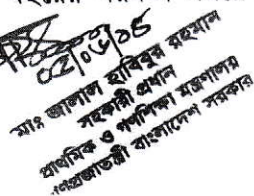 ০৫/০৬/০৫
মোঃ জালাল হাবিবুর রহমান
সহকারী প্রধান
প্রাথমিক ও গণশিক্ষা মন্ত্রণালয়
গণপ্রজাতন্ত্রী বাংলাদেশ সরকার